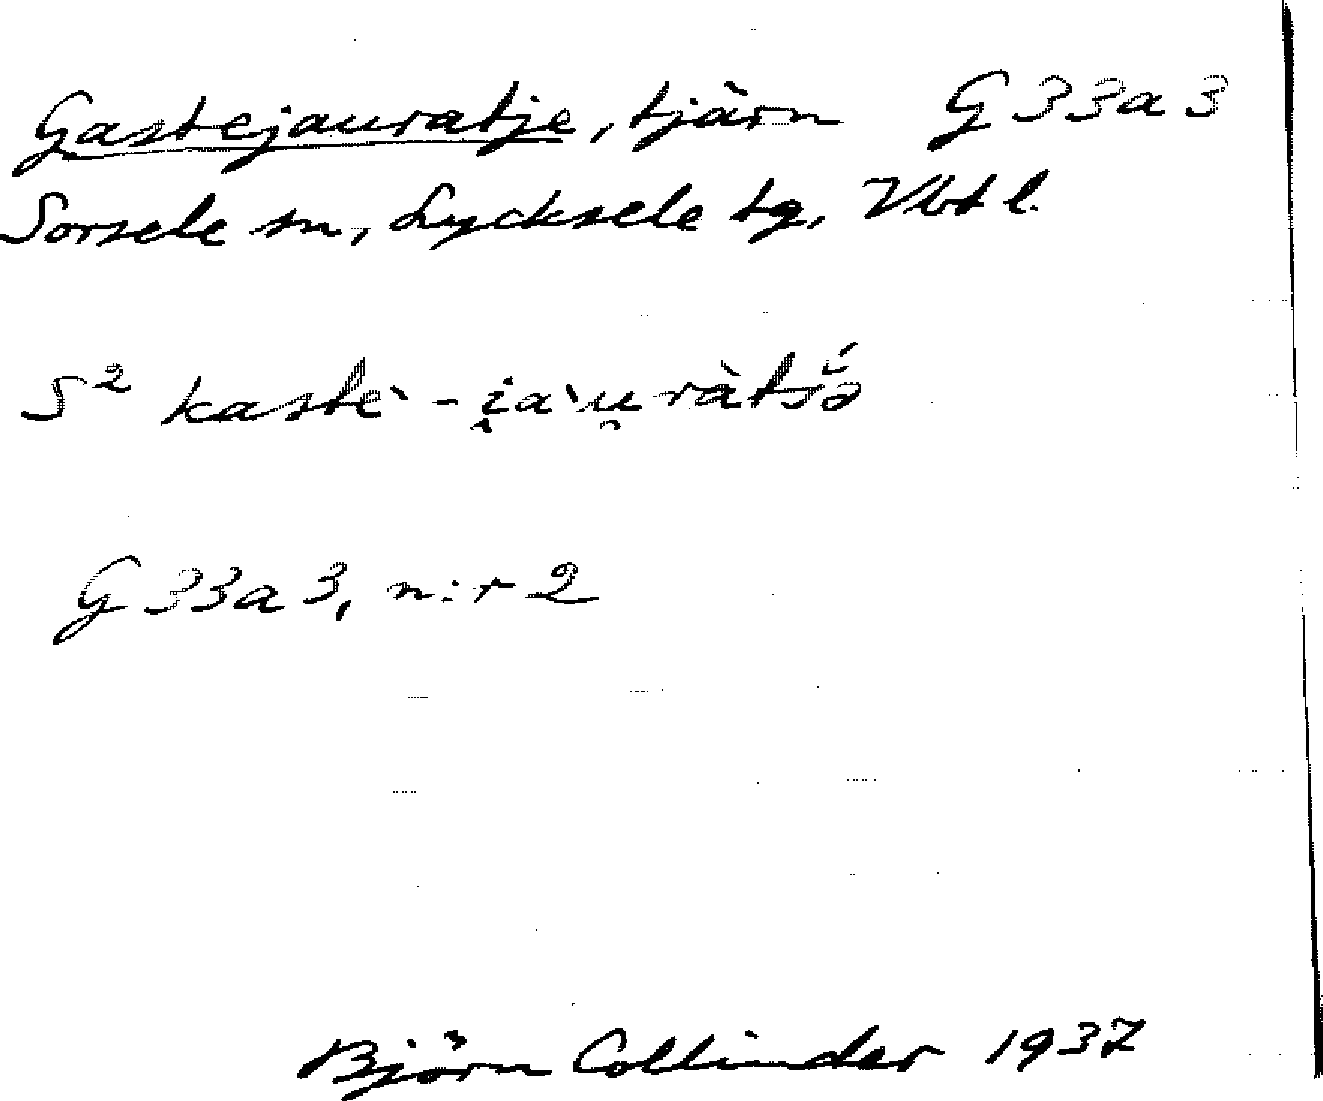 Gastejauratje, tjärn G 33a 3
Sorsele sn, Lycksele tg, Vbtl.
S² kastè - i̯a`u̯ràtśə
G 33a 3, n:r 2
Björn Collinder 1937